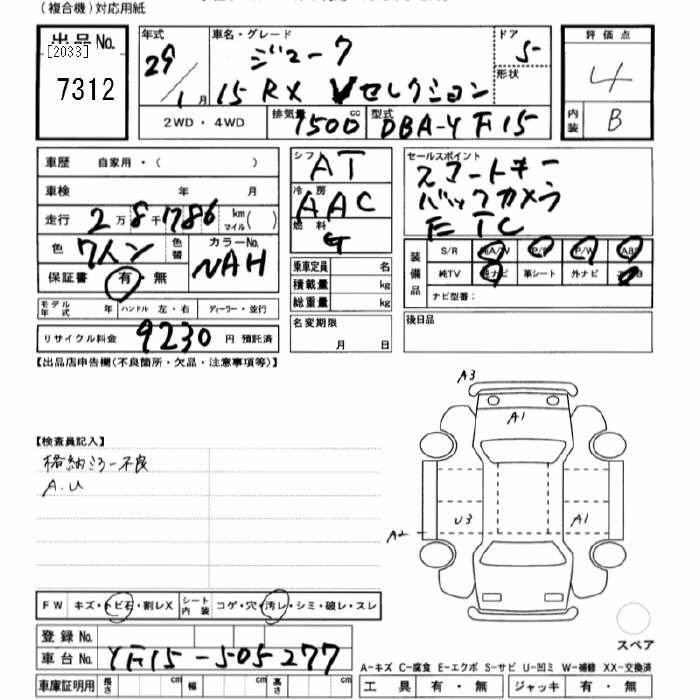 (複合機)対応用紙
出品No.
[2033]
7312
年式
29/1月
車名・グレード
ジューク
15RX Vセレクション
ドア
5
形状
2WD・4WD
排気量
1500cc
型式
DBA-YF15
評価点
4
内装
B
車歴 自家用・( )
車検 年 月
走行 2万8千1786 km マイル( )
色 ワイン
色替
カラーNo.
NAH
保証書 有・無
モデル年式 年 ハンドル 左・右 ディーラー・並行
リサイクル料金 9230円 預託済
シフ
AT
冷房
AAC
燃料
G
乗車定員 名
積載量 kg
総重量 kg
名変期限
月 日
セールスポイント
スマートキー
バックカメラ
ETC
装備品
S/R 純A/W P/S P/W ABS
純TV 純ナビ 革シート 外ナビ
ナビ型番:
後日品
【出品店申告欄(不良箇所・欠品・注意事項等)】
【検査員記入】
格納ミラー不良
A.U
A3
A1
A2
U3
A1
FW キズ・トビ石・割レX
シート内装 コゲ・穴・汚レ・シミ・破レ・スレ
登録No.
車台No. YF15-505277
スペア
A-キズ C-腐食 E-エクボ S-サビ U-凹ミ W-補修 XX-交換済
車庫証明用 長さ cm 幅 cm 高さ cm
工具 有・無 ジャッキ 有・無